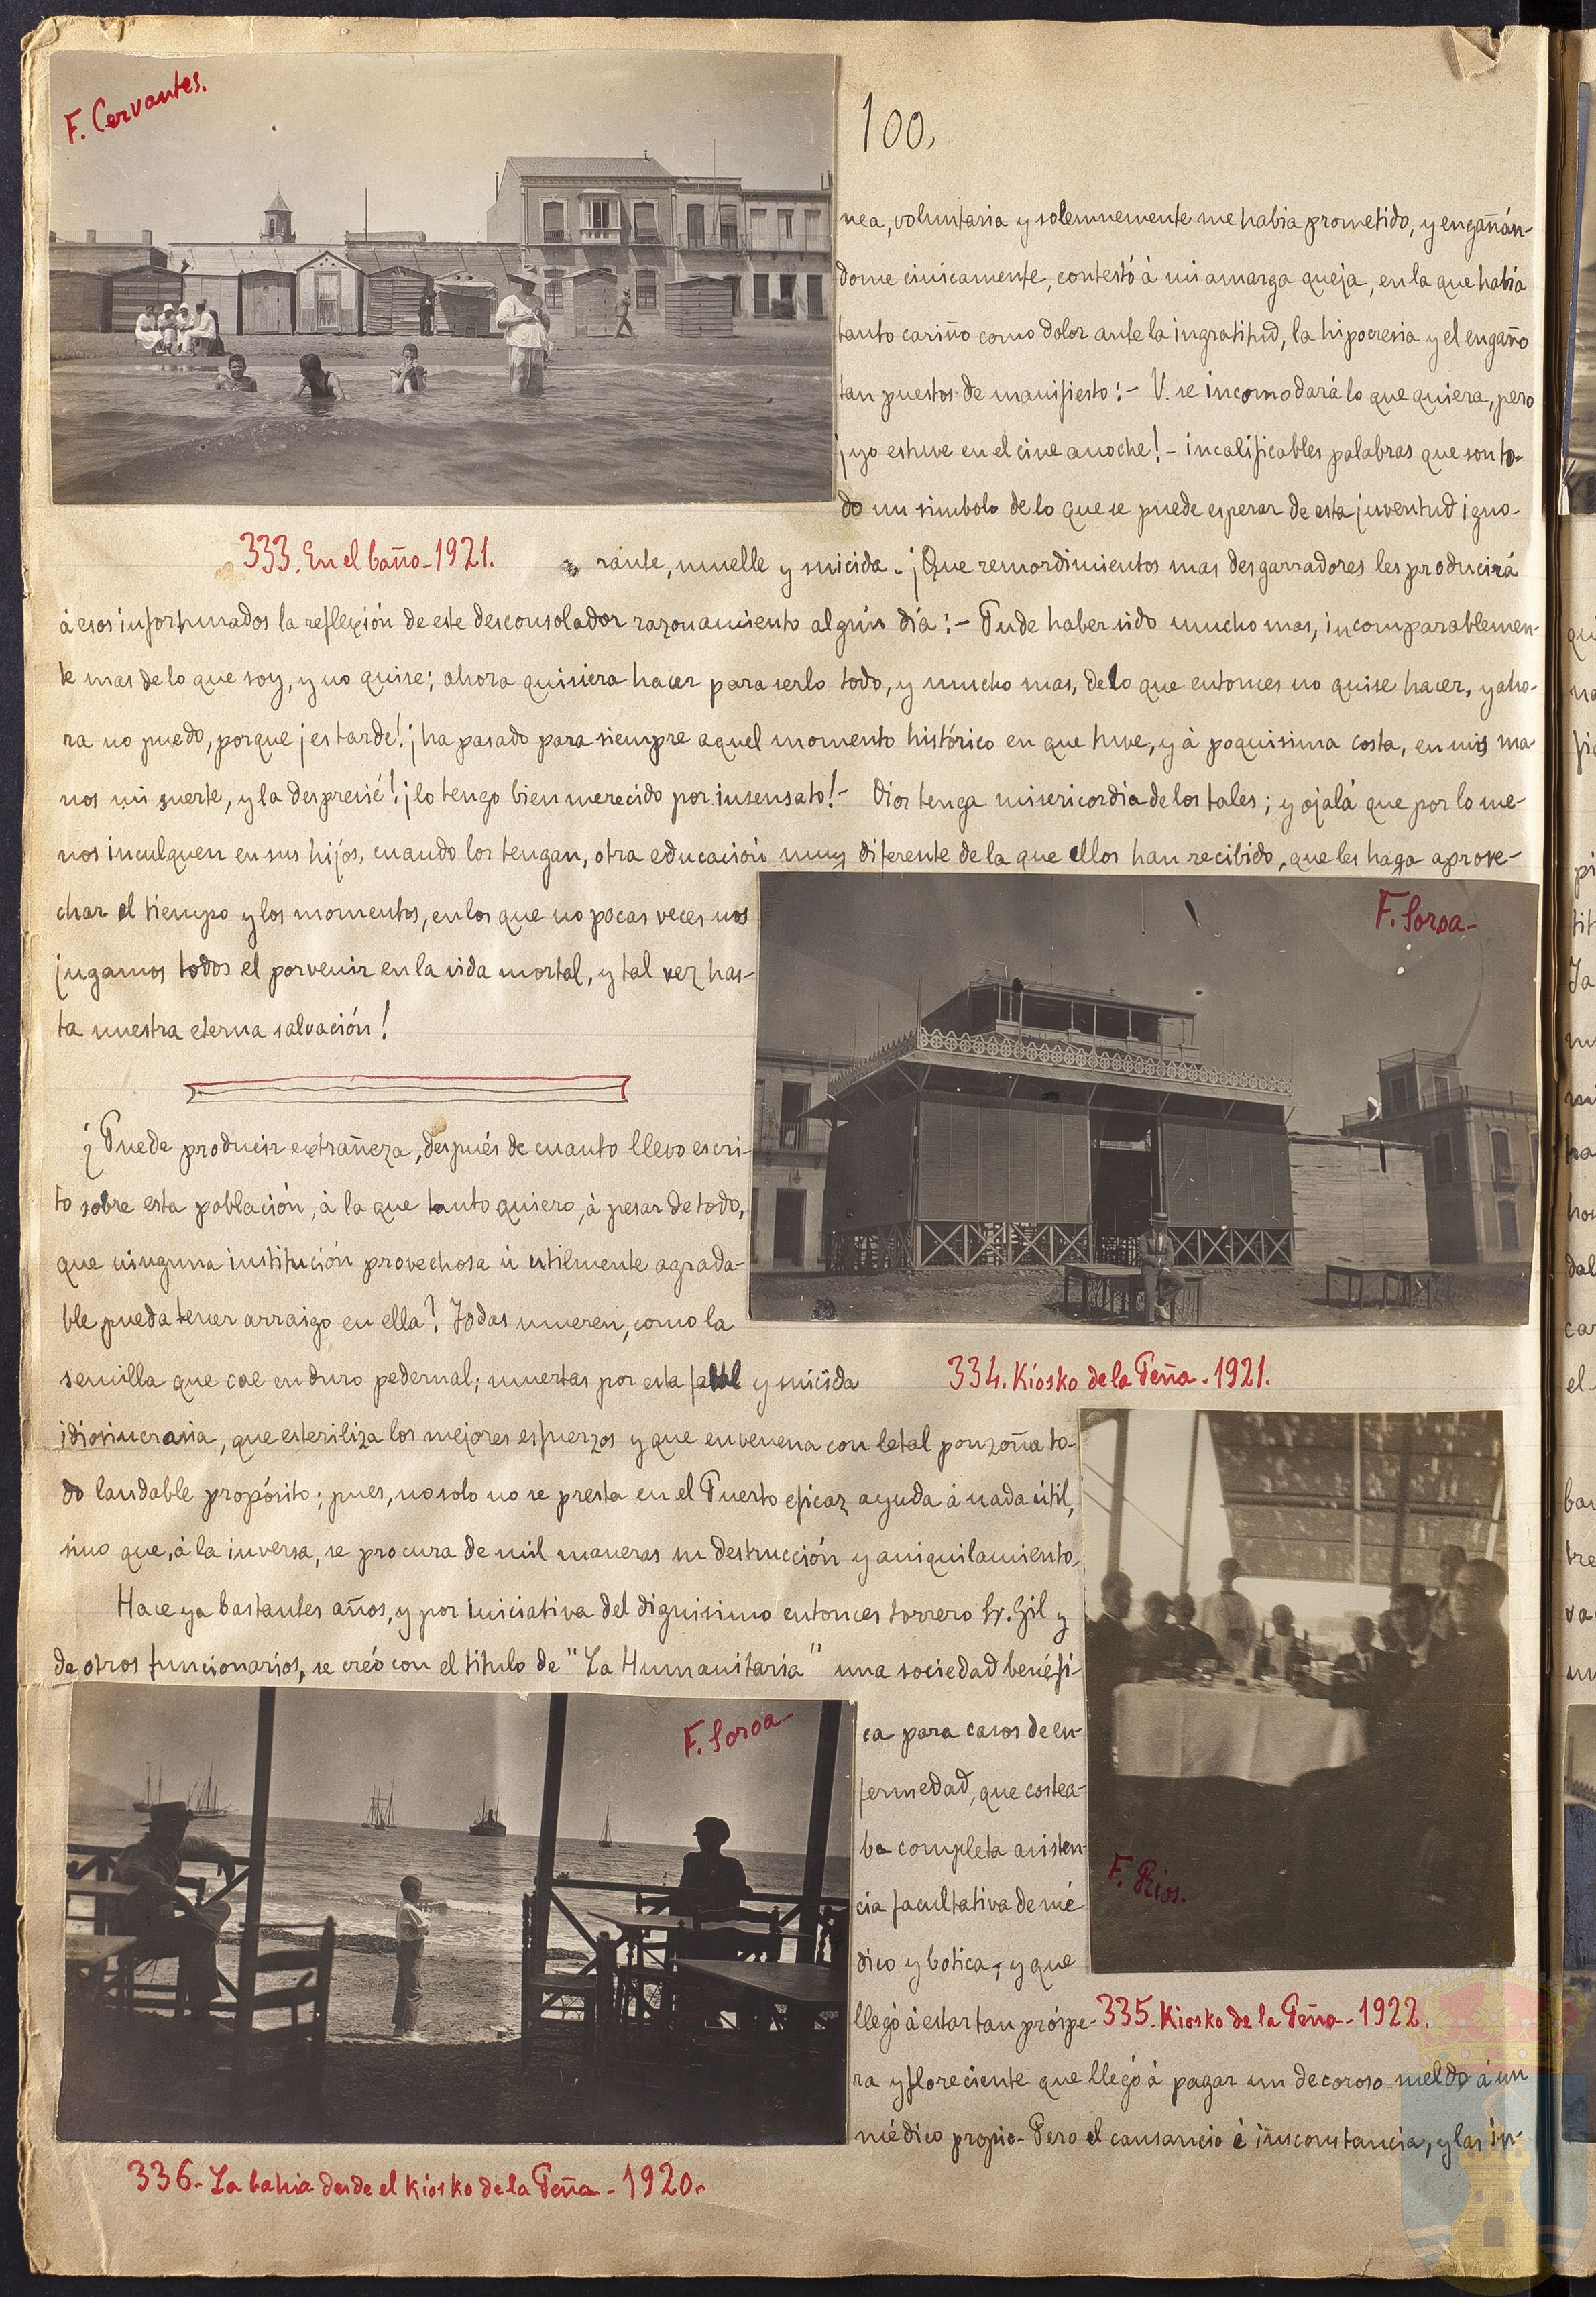 F. Cervantes.
100,
nea, voluntaria y solemnemente me habia prometido, y engañán-
dome cinicamente, contestó à mi amarga queja, en la que habia
tanto cariño como dolor ante la ingratitud, la hipocresia y el engaño
tan puestos de manifiesto:- V. se incomodará lo que quiera, pero
¡yo estuve en el cine anoche!- incalificables palabras que son to-
do un simbolo de lo que se puede esperar de esta juventud igno-
333. En el baño - 1921.
rante, muelle y suicida. ¡Que remordimientos mas desgarradores les producirá
à esos infortunados la reflexión de este desconsolador razonamiento algún día:- Pude haber sido mucho mas, incomparablemen-
te mas de lo que soy, y no quise; ahora quisiera hacer para serlo todo, y mucho mas, de lo que entonces no quise hacer, y aho-
ra no puedo, porque ¡es tarde! ¡ha pasado para siempre aquel momento histórico en que tuve, y à poquisima costa, en mis ma-
nos mi suerte, y la desprecié! ¡lo tengo bien merecido por insensato!- Dios tenga misericordia de los tales; y ojalá que por lo me-
nos inculquen en sus hijos, cuando los tengan, otra educación muy diferente de la que ellos han recibido, que les haga aprove-
char el tiempo y los momentos, en los que no pocas veces nos
jugamos todos el porvenir en la vida mortal, y tal vez has-
ta nuestra eterna salvación!
F. Soroa-
¿Puede producir extrañeza, después de cuanto llevo escri-
to sobre esta población, à la que tanto quiero, à pesar de todo,
que ninguna institución provechosa ú utilmente agrada-
ble pueda tener arraigo en ella? Todas mueren, como la
semilla que cae en duro pedernal; muertas por esta fatal y suicida
334. Kiosko de la Peña - 1921.
idiosincrasia, que esteriliza los mejores esfuerzos y que envenena con letal ponzoña to-
do laudable propósito; pues, no solo no se presta en el Puerto eficaz ayuda à nada útil,
sino que, à la inversa, se procura de mil maneras su destrucción y aniquilamiento.
Hace ya bastantes años, y por iniciativa del dignisimo entonces torrero Sr. Gil y
de otros funcionarios, se creó con el titulo de "La Humanitaria" una sociedad benéfi-
F. Soroa-
ca para casos de en-
fermedad, que costea-
ba completa asisten-
cia facultativa de mé
dico y botica; y que
llegó à estar tan próspe-
F. Rios.
335. Kiosko de la Peña - 1922.
ra y floreciente que llegó à pagar un decoroso sueldo à un
médico propio. Pero el cansancio é inconstancia, y las in-
336. La bahia desde el Kiosko de la Peña - 1920.